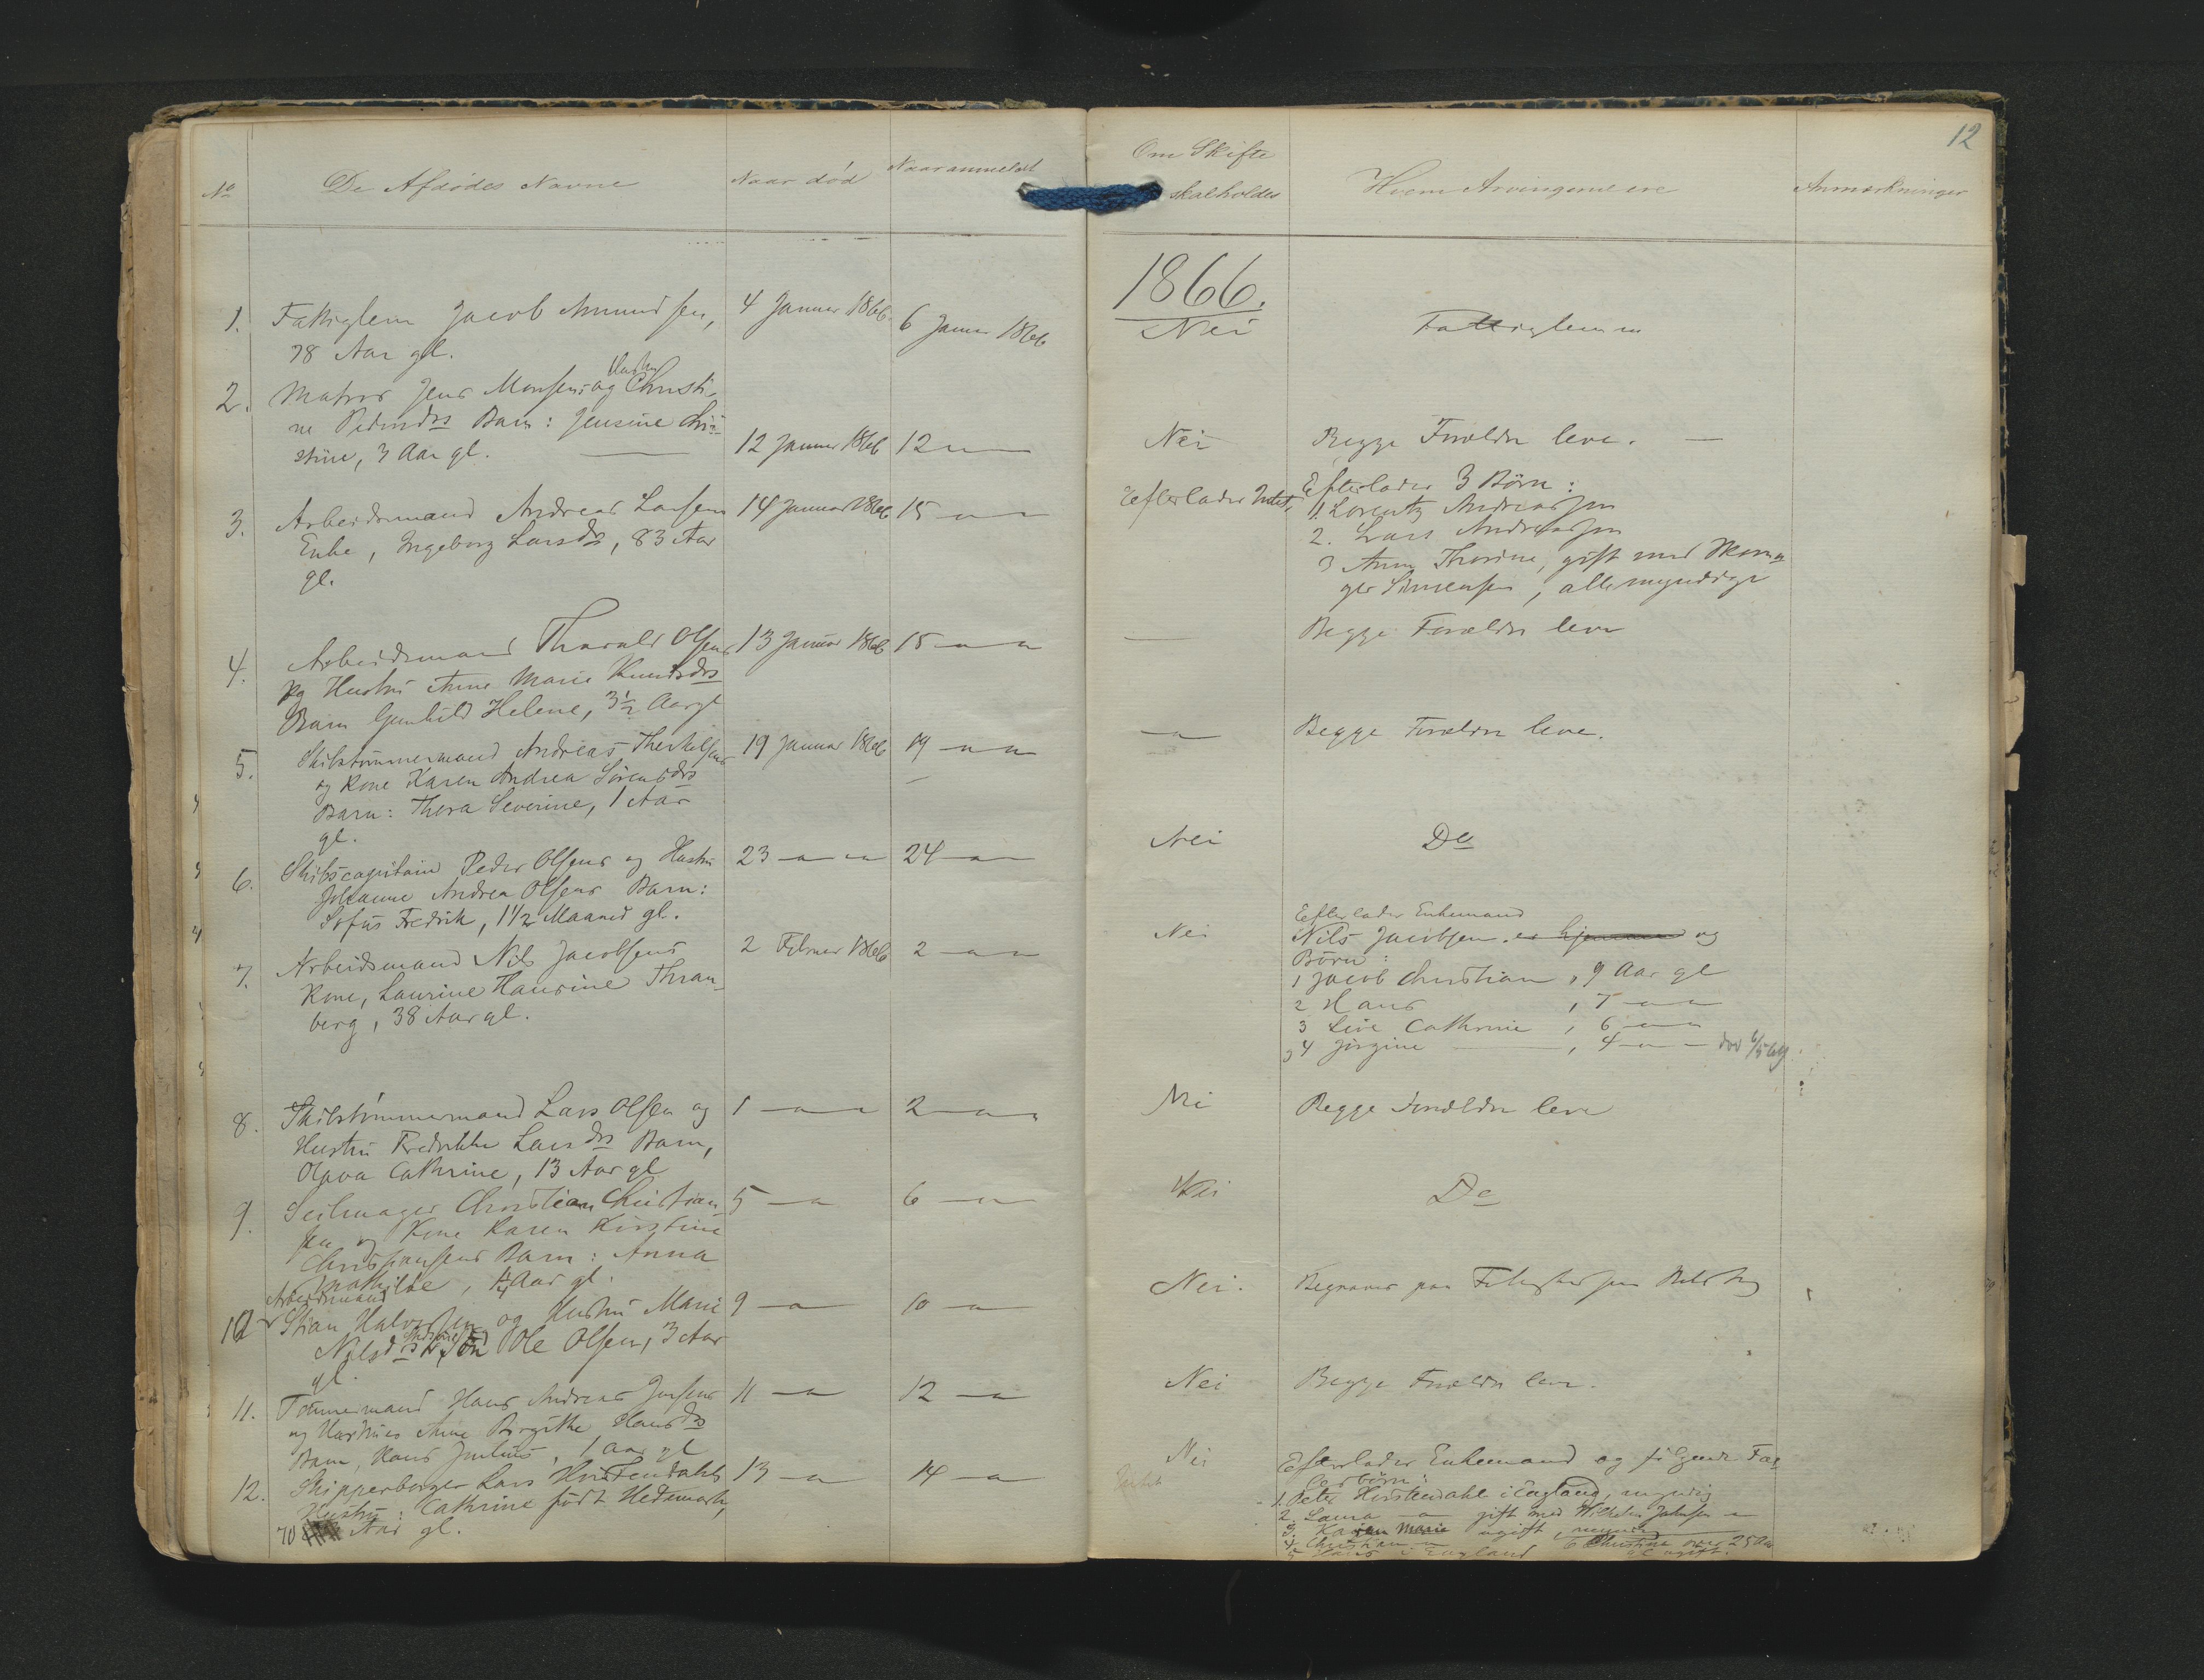 12
No
De Afdødes Navne
Naar død
Naar anmeldt
Om Skifte
skal holdes
Hvem Arvingerne ere
Anmærkninger
1866.
1. Fattiglem Jacob Amundsen,
78 Aar gl.
4 Januar 1866
6 Januar 1866
Nei
Fattiglem
2. Matros Jens Monsens og Hustru Christi-
ne Pedersdrs Barn: Jensine Chri-
stine, 3 Aar gl. —
12 Januar 1866
12 — "
Nei
Begge Forældre leve. —
3. Arbeidsmand Andreas Larsens
Enke, Ingeborg Larsdr, 83 Aar
gl.
14 Januar 1866
15 — " — "
Efterlader Intet.
Efterlader 3 Børn:
1. Lorentz Andreassen
2. Lars Andreassen
3 Anne Thorine, gift med Skoma-
ger Simensen, alle myndige
4. Arbeidsmand Tharald Olsens
og Hustru Anne Marie Knudsdrs
Barn Gunhild Helene, 3 1/2 Aar gl
13 Januar 1866
15 — " — "
—
Begge Forældre leve
5. Skibstømmermand Andreas Therkelsens
og Kone Karen Andrea Sørensdrs
Barn: Thora Severine, 1 Aar
gl.
19 Januar 1866
19 — " — "
— " —
Begge Forældre leve.
6. Skibscapitain Peder Olsens og Hustru
Johanne Andrea Olsens Barn:
Sofus Fredrik, 1 1/2 Maaned gl.
23 — " — "
24 — " —
Nei
Do
7. Arbeidsmand Nils Jacobsens
Kone, Laurine Haurine Thran-
berg, 38 Aar gl.
2 Februar 1866
2 — " — "
Nei
Efterlader Enkemand
Nils Jacobsen og
Børn:
1 Jacob Christian, 9 Aar gl
2 Hans, 7 — " — "
3 Live Cathrine, 6 — " — "
4 Jørgine —, 4 — " — død
8. Skibstømmermand Lars Olsen og
Hustru Fredrikke Larsdrs Barn,
Olava Cathrine, 13 Aar gl
1 — " — "
2 — " — "
Nei
Begge Forældre leve
9. Seilmager Christian Christian-
sen og Kone Karen Kirstine
Christiansens Barn: Anna
Mathilde, Aar gl.
5 — "
6 — "
Nei
Do
10 Arbeidsmand
Stian Halvorsen og Hustru Marie
Nilsdrs Søn Ole Olsen, 3 Aar
gl.
9 — "
10 — "
Nei.
Begraves paa
11. Tømmermand Hans Andreas Jensens
og Hustrues Anne Birgitte Hansdrs
Barn, Hans Julius, 1 Aar gl
11 — "
12 — "
Nei
Begge Forældre leve.
12. Skipperborger Lars Hvistendahls
Hustru: Cathrine født Hedemark,
70 Aar gl.
13 — "
14 — "
Nei
Efterlader Enkemand og følgende Fæl-
lesbørn:
1. Peter Hvistendahl i England, myndig
2. Laura — " gift med Wilhelm Johnsen — "
3. Karen Marie ugift, myndig
4. Christian — "
6 Christine over 25 Aar
5 i England
gl. ugift.